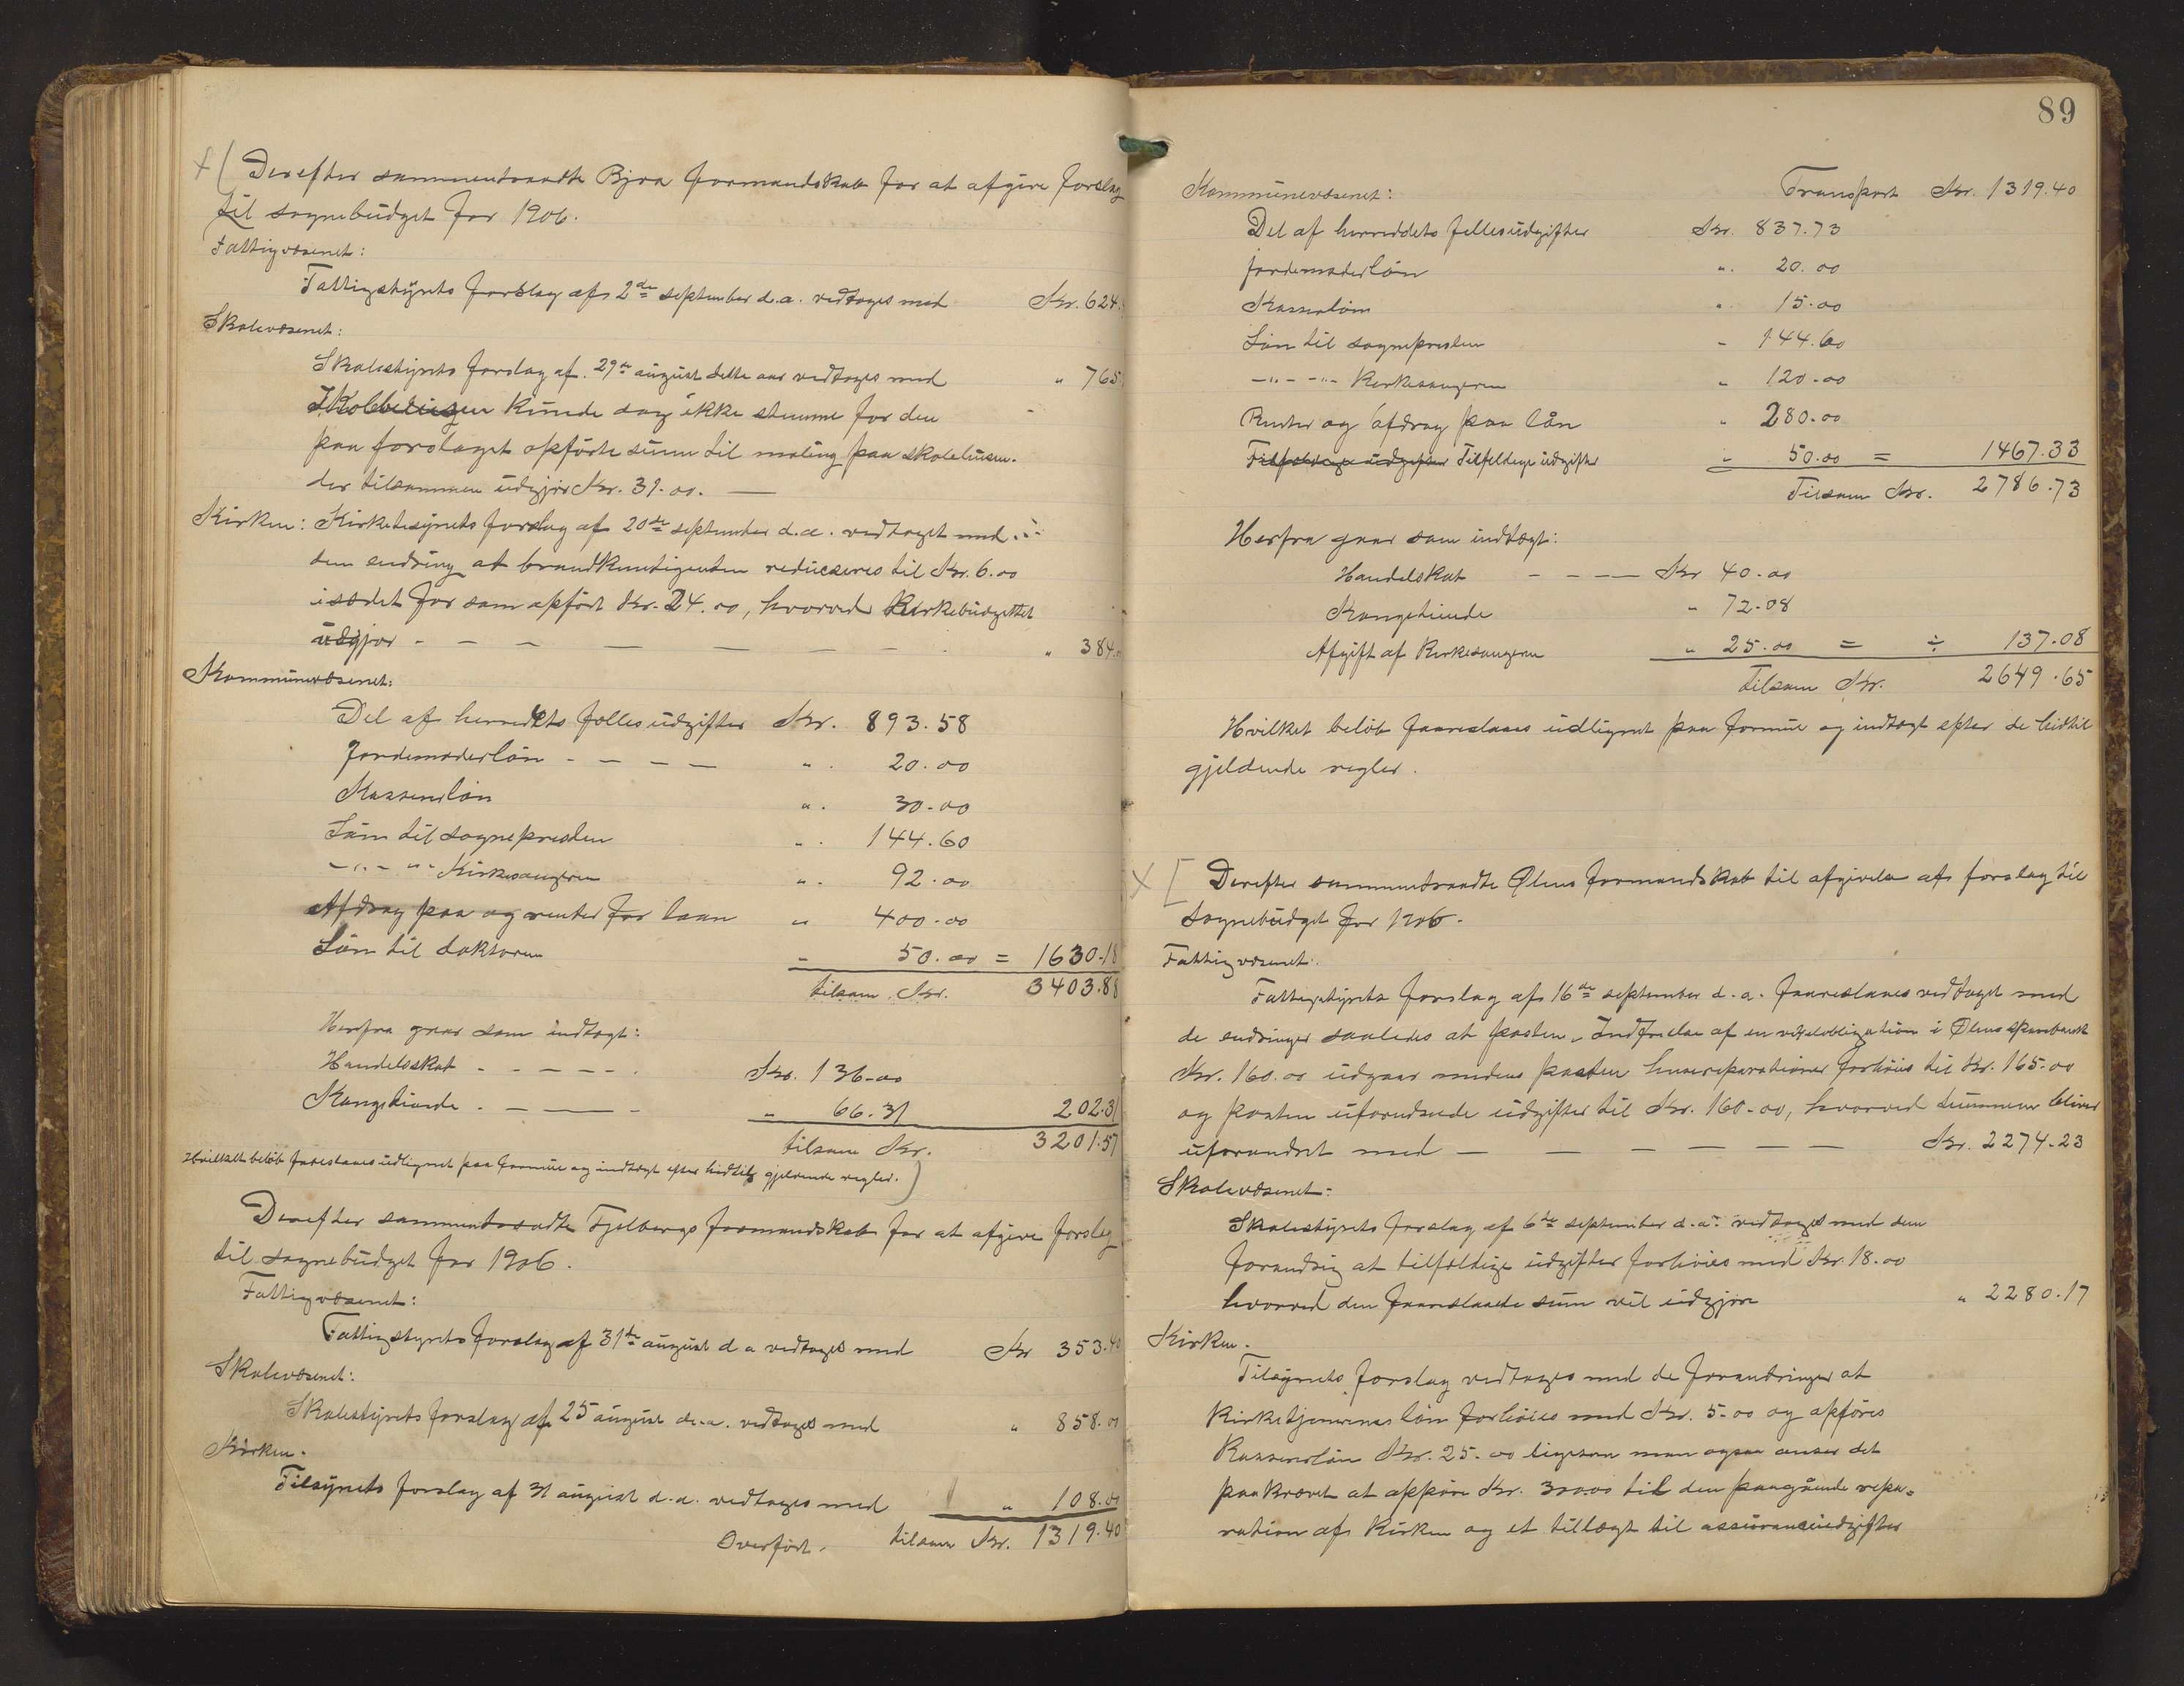 Derefter sammentraadte Bjoa formandskab for at afgive forslag
til sognebudget for 1906.
Fattigvæsenet:
Fattigstyrets forslag af 2de september d.a. vedtoges med Kr. 624.
Skolevæsenet:
Skolestyrets forslag af 29de august dette aar vedtoges med " 765
kunde dog ikke stemme for den
paa forslaget opførte sum til maling paa skolehusen.
der tilsammen udgjør Kr. 31.00.
Kirken: Kirketilsynets forslag af 20de september d.a. vedtaget med
den endring at brandkontigenten reduceres til Kr. 6.00
istedet for som opført Kr. 24.00, hvorved Kirkebudgettet
udgjør - - - - - - " 384.
Kommunevæsenet:
Del af herredets fællesudgifter Kr. 893.58
Jordemoderløn - - - - " 20.00
Kassererløn " 30.00
Løn til sognepresten " 144.60
-"- "- Kirkesangeren " 92.00
Afdrag paa og renter for laan " 400.00
Løn til doktoren " 50.00 = 1630.18
tilsam Kr. 3403.88
Herfra gaar som indtægt:
Handelsskat - - - - - Kr. 136.00
Kongetiende - - - - " 66.31 202.31
tilsam Kr. 3201.57
Hvilket beløb foreslaaes udlignet paa formue og indtægt efter hidtil gjeldende regler.)
Derefter sammentraadte Fjelbergs formandskab for at afgive forslag
til sognebudget for 1906.
Fattigvæsenet:
Fattigstyrets forslag af 31te august d a vedtoges med Kr 353.40
Skolevæsenet:
Skolestyrets forslag af 25 august d.a. vedtoges med " 858.00
Kirken.
Tilsynets forslag af 31 august d.a. vedtoges med " 108.00
Overført. tilsam Kr. 1319.40
89
Kommunevæsenet: Transport Kr. 1319.40
Del af herreddets fellesudgifter Kr. 837.73
jordemoderløn " 20.00
Kasserløn " 15.00
Løn til sognepresten - 144.60
-"- - "- Kirkesangeren " 120.00
Renter og afdrag paa lån " 280.00
Tilfeldige udgifter Tilfeldige udgifter " 50.00 = 1467.33
Tilsam Kr. 2786.73
Herfra gaar som indtægt:
Handelskat - - - - Kr 40.00
Kongetiende " 72.08
Afgift af Kirkesangeren " 25.00 = ÷ 137.08
tilsam Kr. 2649.65
Hvilket beløb foareslaaes udlignet paa formue og indtægt efter de hidtil
gjeldende regler.
Derefter sammentraadte Ølens formandskab til afgivelse af forslag til
sognebudget for 1906.
Fattigvæsenet.
Fattigstyrets forslag af 16de september d.a. foareslaaes vedtaget med
de endringer saaledes at posten "Indfrielse af en vexelobligation i Ølens sparebank
Kr. 160.00 udgaar medens posten husreparationer forhøies til Kr. 165.00
og posten uforudsede udgifter til Kr. 160.00, hvorved summen bliver
uforandret med - - - - - - Kr. 2274.23
Skolevæsenet:
Skolestyrets forslag af 6te september d.a. vedtages med den
forandrig at tilfældige udgifter forhøies med Kr. 18.00
hvorved den foareslaaede sum vil udgjøre " 2280.17
Kirken.
Tilsynets forslag vedtages med de forandringer at
Kirketjenernes løn forhøies med Kr. 5.00 og opføres
Kassererløn Kr. 25.00 ligesom man ogsaa anser det
paakrævet at oppøre Kr. 300.00 til den paagående repa-
ration af Kirken og et tillægt til assuranceudgifter